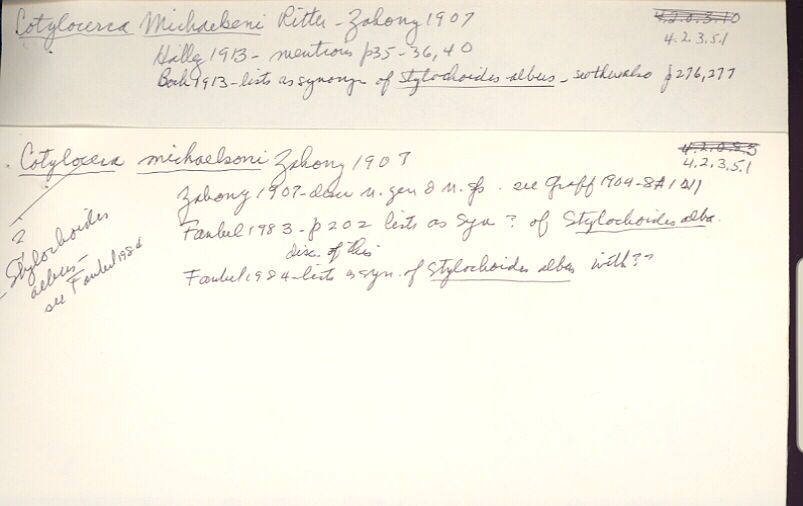 Cotylocerca Michaelseni Ritter-Zahony 1907
4.2.0.3.10
4.2.3.5.1
Hallez 1913 - mentions p35-36, 40
Bock 1913 - lists as synonym of Stylochoides albus - see also p276, 277
Cotylocera michaelseni Zahony 1907
4.2.3.5.1
Zahony 1907 - desc n. gen & n. sp. see Graff 1904-8
Faubel 1983 - p202 lists as syn ? of Stylochoides alba.
disc. of this
Faubel 1984 - lists as syn. of Stylochoides albus with ??
?
Stylochoides
albus -
see Faubel 1984